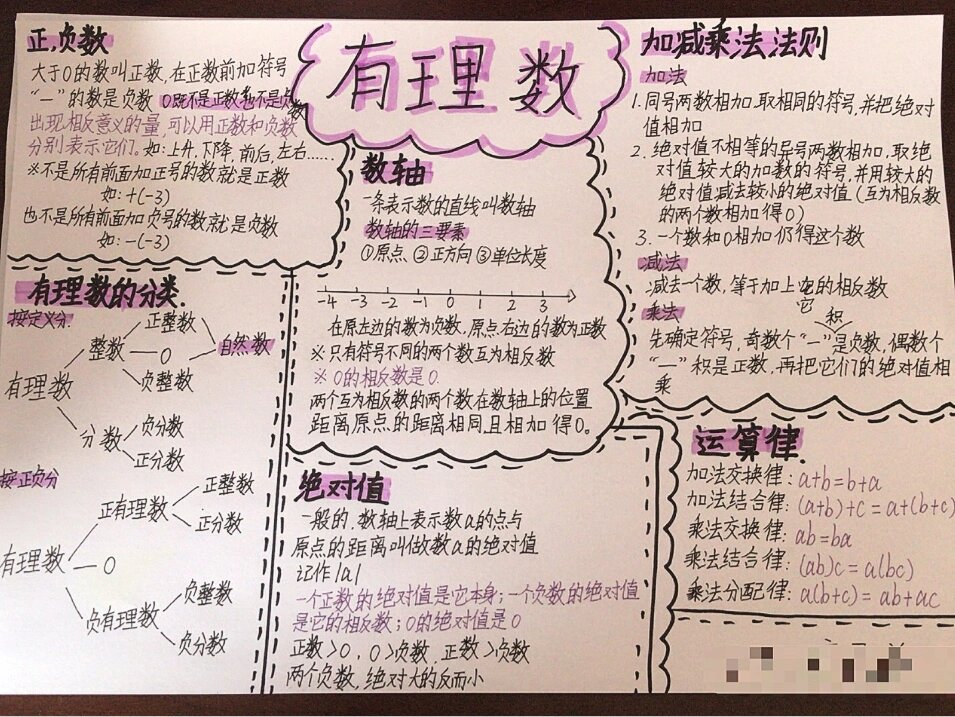 有理数
正,负数
大于0的数叫正数,在正数前加符号
“一”的数是负数 0既不是正数也不是负数
出现相反意义的量,可以用正数和负数
分别表示它们。如:上升,下降,前后,左右……
※不是所有前面加正号的数就是正数
如:+(-3)
也不是所有前面加负号的数就是负数
如:-(-3)
有理数的分类.
按定义分.
有理数
整数
正整数
0
负整数
自然数
分数
负分数
正分数
按正负分
有理数
正有理数
正整数
正分数
0
负有理数
负整数
负分数
数轴
一条表示数的直线叫数轴
数轴的三要素
①原点、②正方向 ③单位长度
-4 -3 -2 -1 0 1 2 3
在原左边的数为负数,原点右边的数为正数
※只有符号不同的两个数互为相反数
※ 0的相反数是0.
两个互为相反数的两个数在数轴上的位置
距离原点的距离相同且相加得0。
绝对值
一般的,数轴上表示数a的点与
原点的距离叫做数a的绝对值
记作|a|
一个正数的绝对值是它本身;一个负数的绝对值
是它的相反数;0的绝对值是0
正数>0,0>负数,正数>负数
两个负数,绝对大的反而小
加减乘法法则
加法
1.同号两数相加,取相同的符号,并把绝对
值相加
2.绝对值不相等的异号两数相加,取绝
对值较大的加数的符号,并用较大的
绝对值减去较小的绝对值(互为相反数
的两个数相加得0)
3.一个数和0相加仍得这个数
减法
减去一个数,等于加上它的相反数
它
乘法
积
先确定符号,奇数个“一”是负数,偶数个
“一”积是正数,再把它们的绝对值相
乘
运算律.
加法交换律:a+b=b+a
加法结合律:(a+b)+c=a+(b+c)
乘法交换律:ab=ba
乘法结合律:(ab)c=a(bc)
乘法分配律:a(b+c)=ab+ac